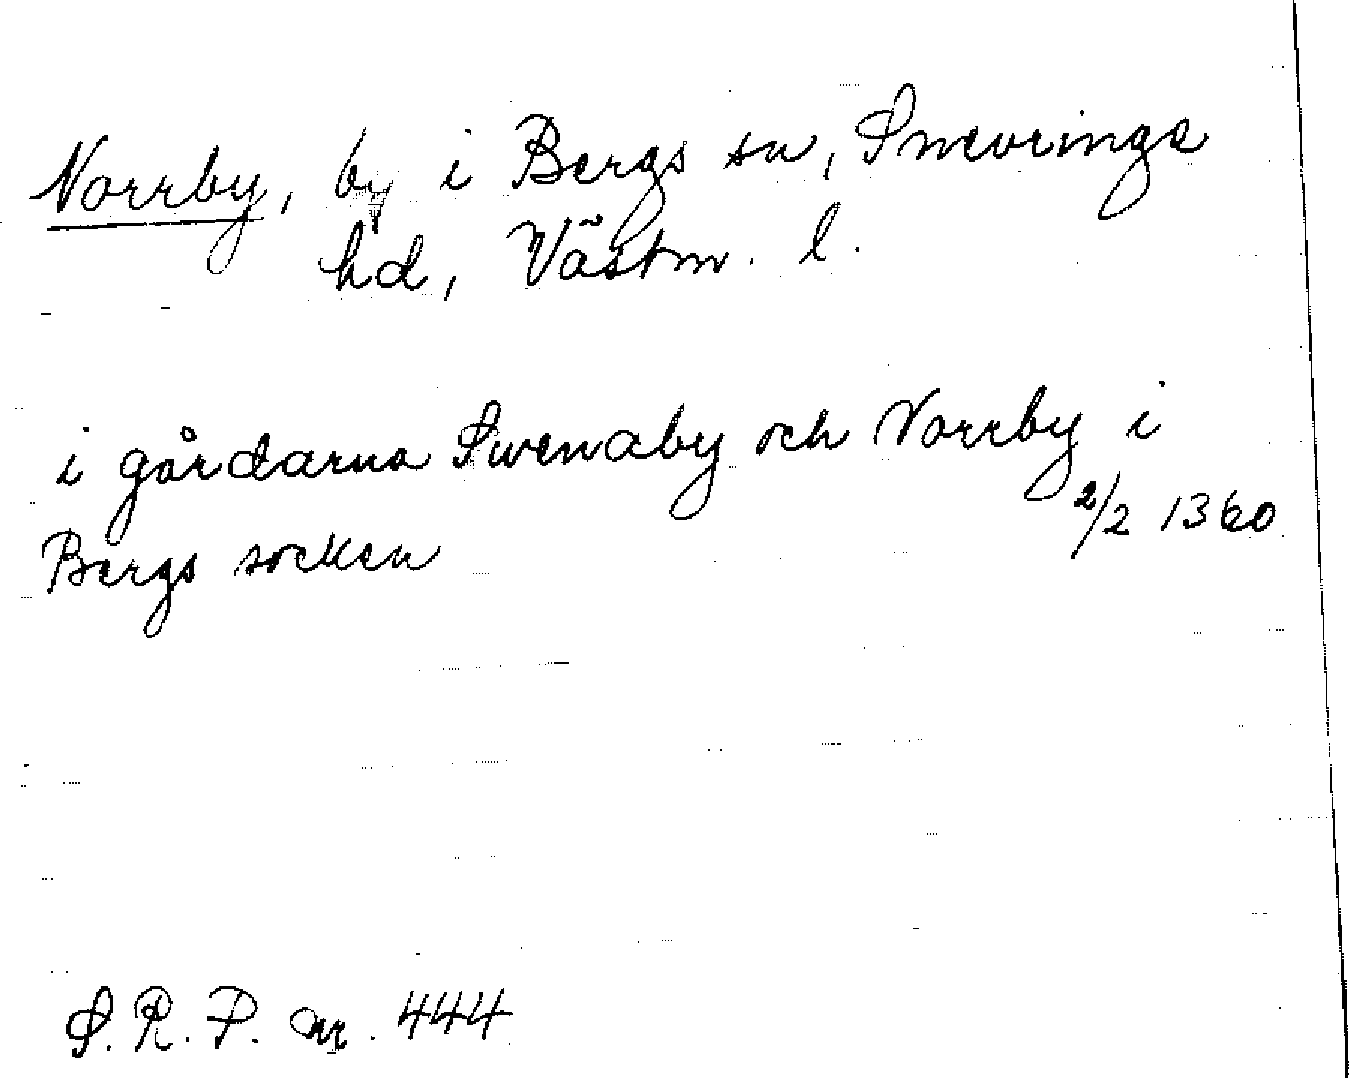 Norrby, by i Bergs sn, Snevringe
hd, Västm. l.
i gårdarna Svenaby och Norrby i
Bergs socken 2/2 1360
S. R. P. nr. 444